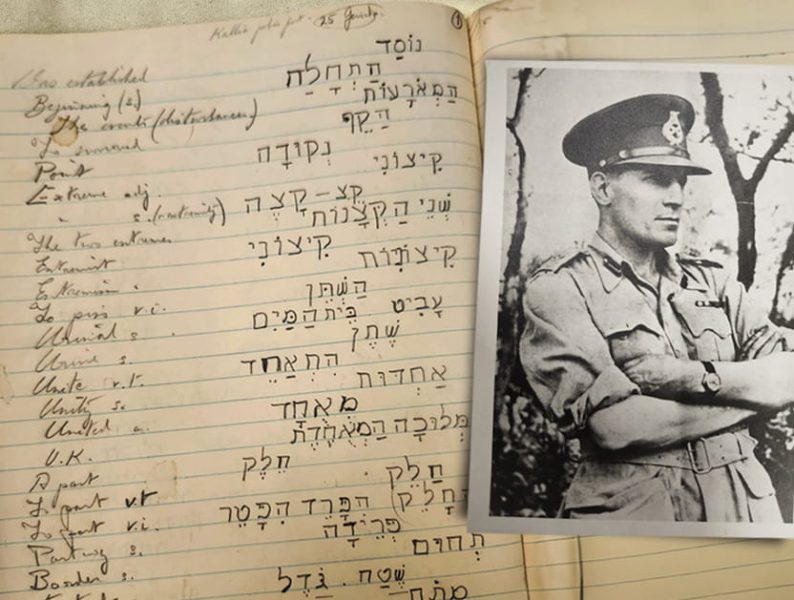 Kallia police post. 25
1
Was established נוֹסַד
Beginning (s.) הַתְחָלָה
The events (disturbances) הַמְאֹרָעוֹת
To surround הַקֵּף
Point נְקוּדָה
Extreme adj. קִיצוֹנִי
" s. (extremity) קֵץ – קָצֶה
The two extremes שְׁנֵי הַקְּצָנוֹת
Extremist קִיצוֹנִי
Extremism " קִיצוֹנִיּוּת
To piss v.i. הַשְׁתֵּן
Urinal s. עָבִיט . בֵּית הַמַּיִם
Urine s. שֶׁתֶן
Unite v.t. הִתְאַחֵד
Unity s. אַחְדוּת
United a. מְאֻחָד
U.K. מְלוּכָה הַמְאֻחֶדֶת
A part חֵלֶק
To part v.t חַלֵּק
To part v.i. הִפָּרֵד הִפָּטֵר (הֵחָלֵק
Parting s. פְּרֵידָה
Border s. תְּחוּם
שֶׁטַח . גֹּדֶל